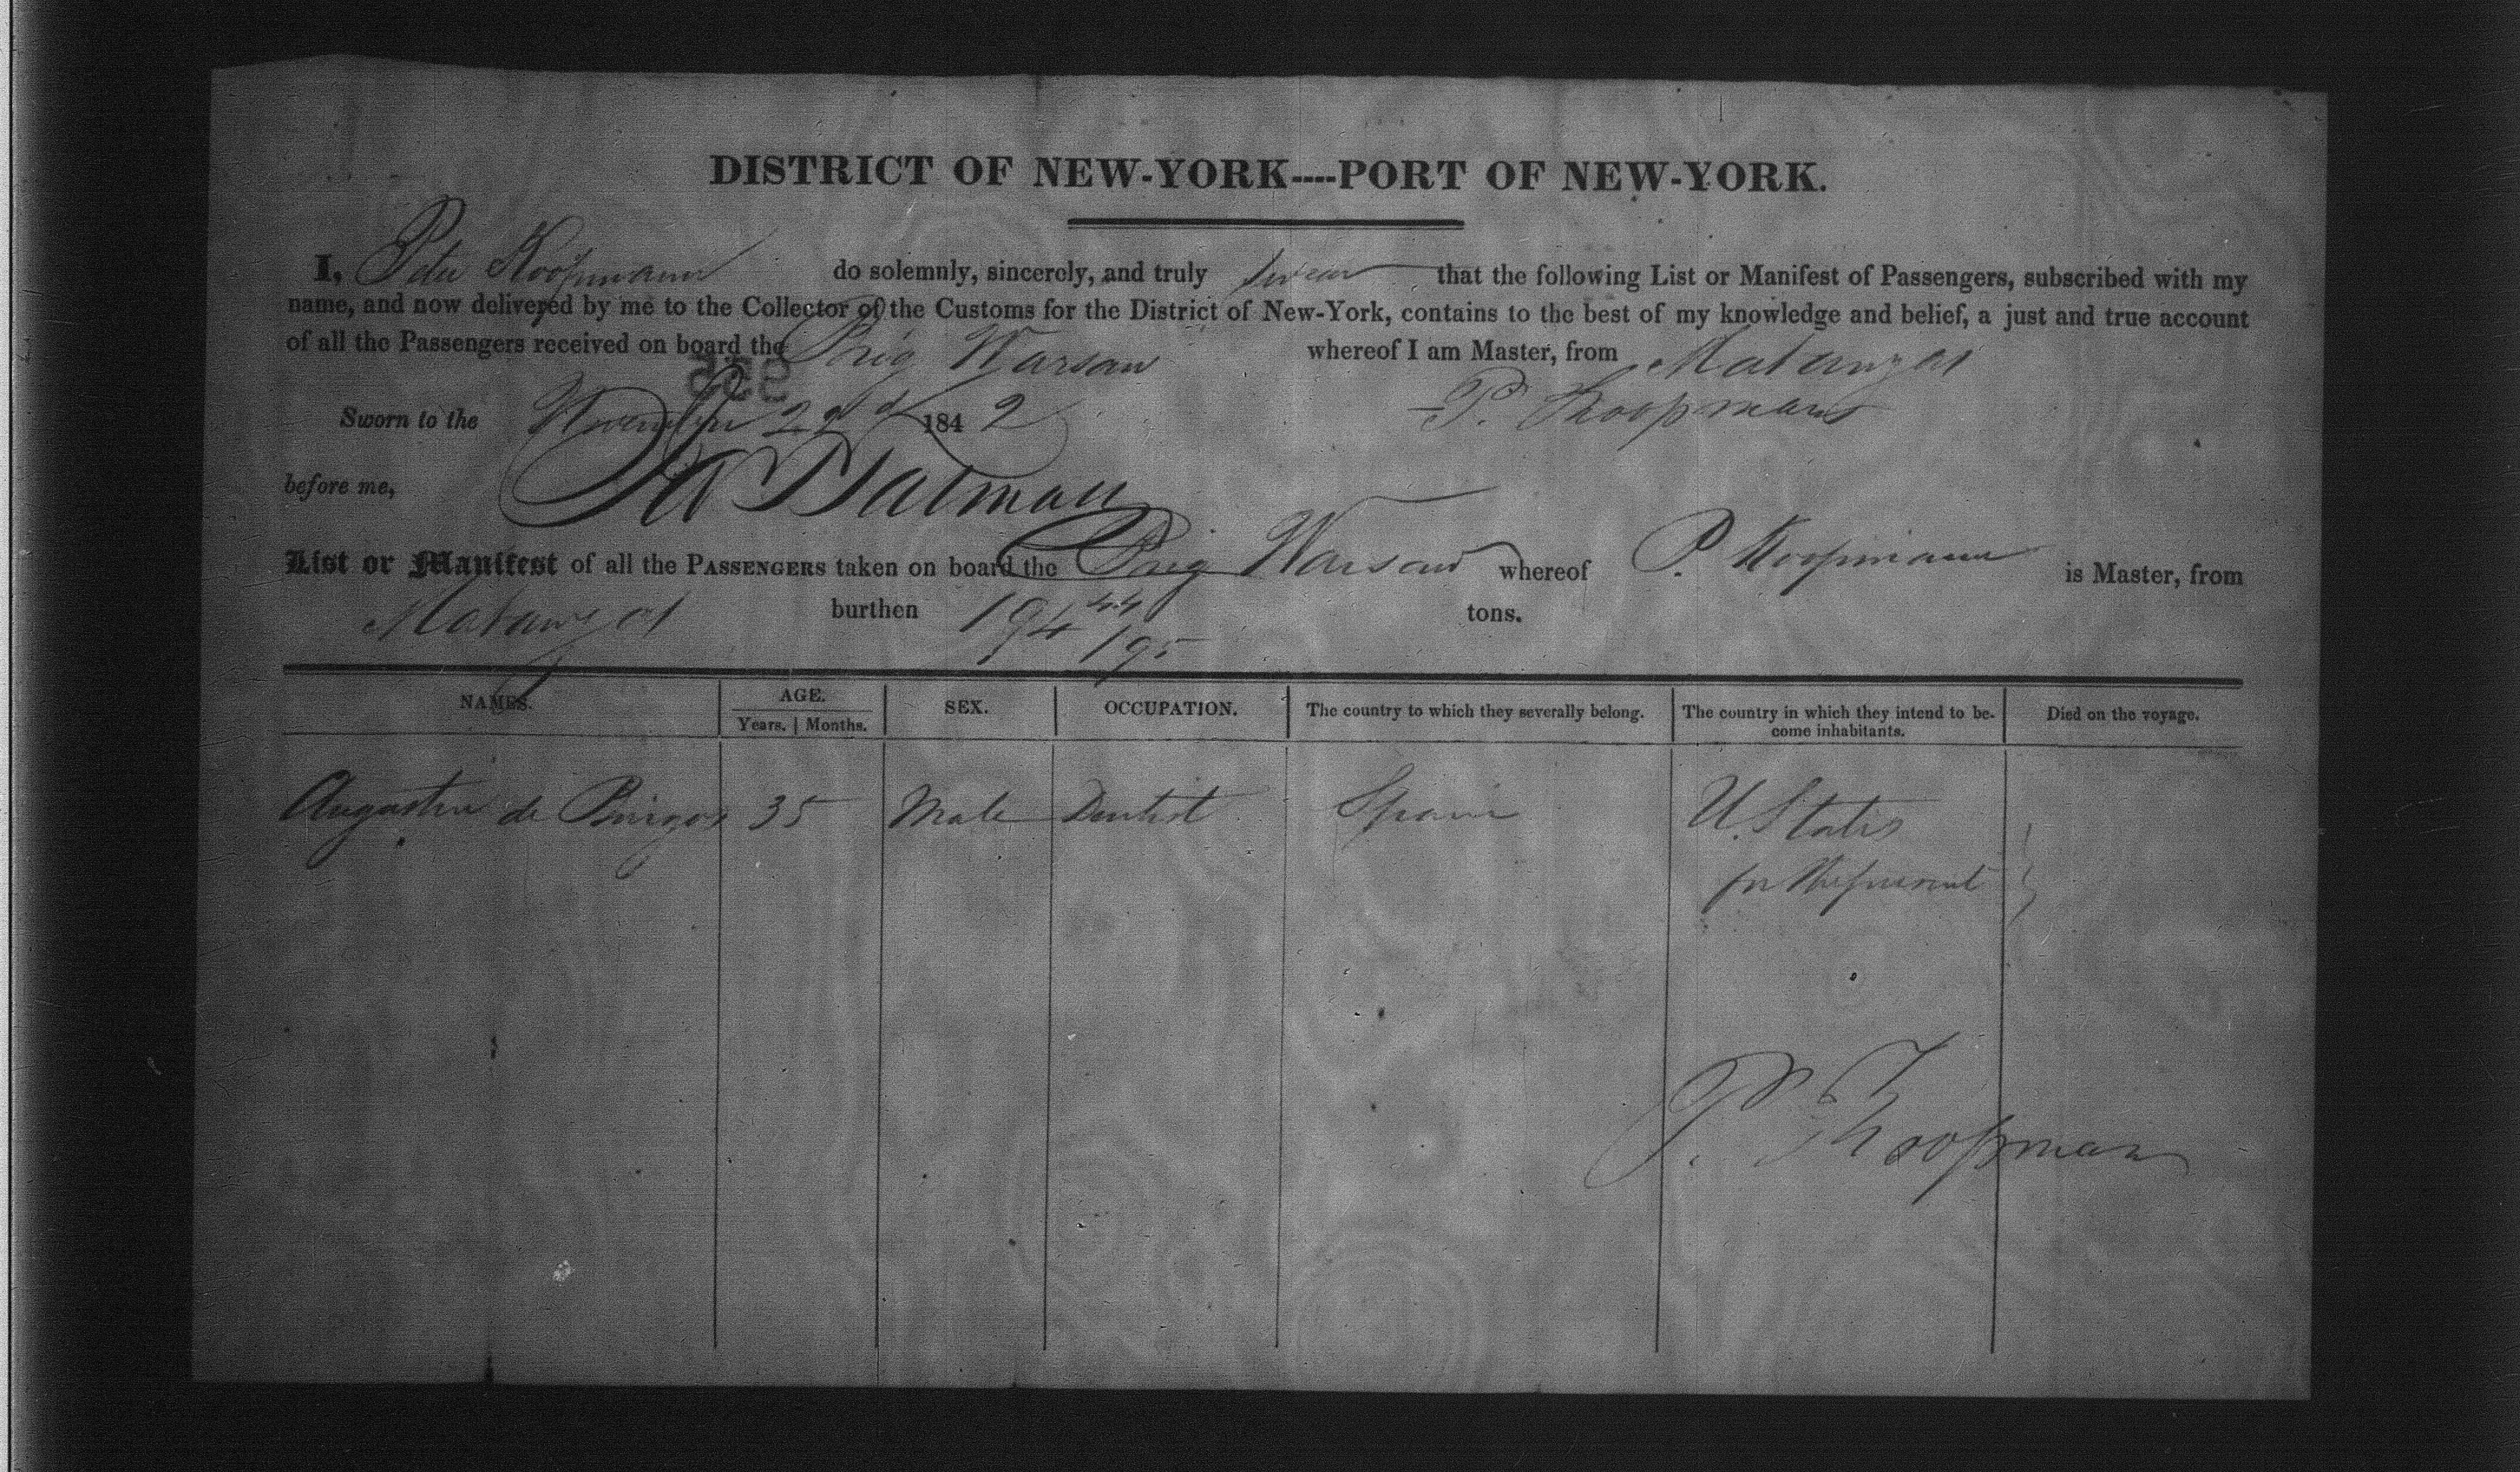 DISTRICT OF NEW-YORK----PORT OF NEW-YORK.
I, Peter Koopmann do solemnly, sincerely, and truly swear that the following List or Manifest of Passengers, subscribed with my
name, and now delivered by me to the Collector of the Customs for the District of New-York, contains to the best of my knowledge and belief, a just and true account
of all the Passengers received on board the Brig Warsaw whereof I am Master, from Matanzas
Sworn to the November 1842 P. Koopmann
before me,
List or Manifest of all the PASSENGERS taken on board the Brig Warsaw whereof P. Koopmann is Master, from
Matanzas burthen 194 44/95 tons.
NAMES. AGE. SEX. OCCUPATION. The country to which they severally belong. The country in which they intend to be- Died on the voyage.
Years. | Months. come inhabitants.
Augustin de Burgos 35 Male Dentist Spain U. States
for the present
P. Koopmann